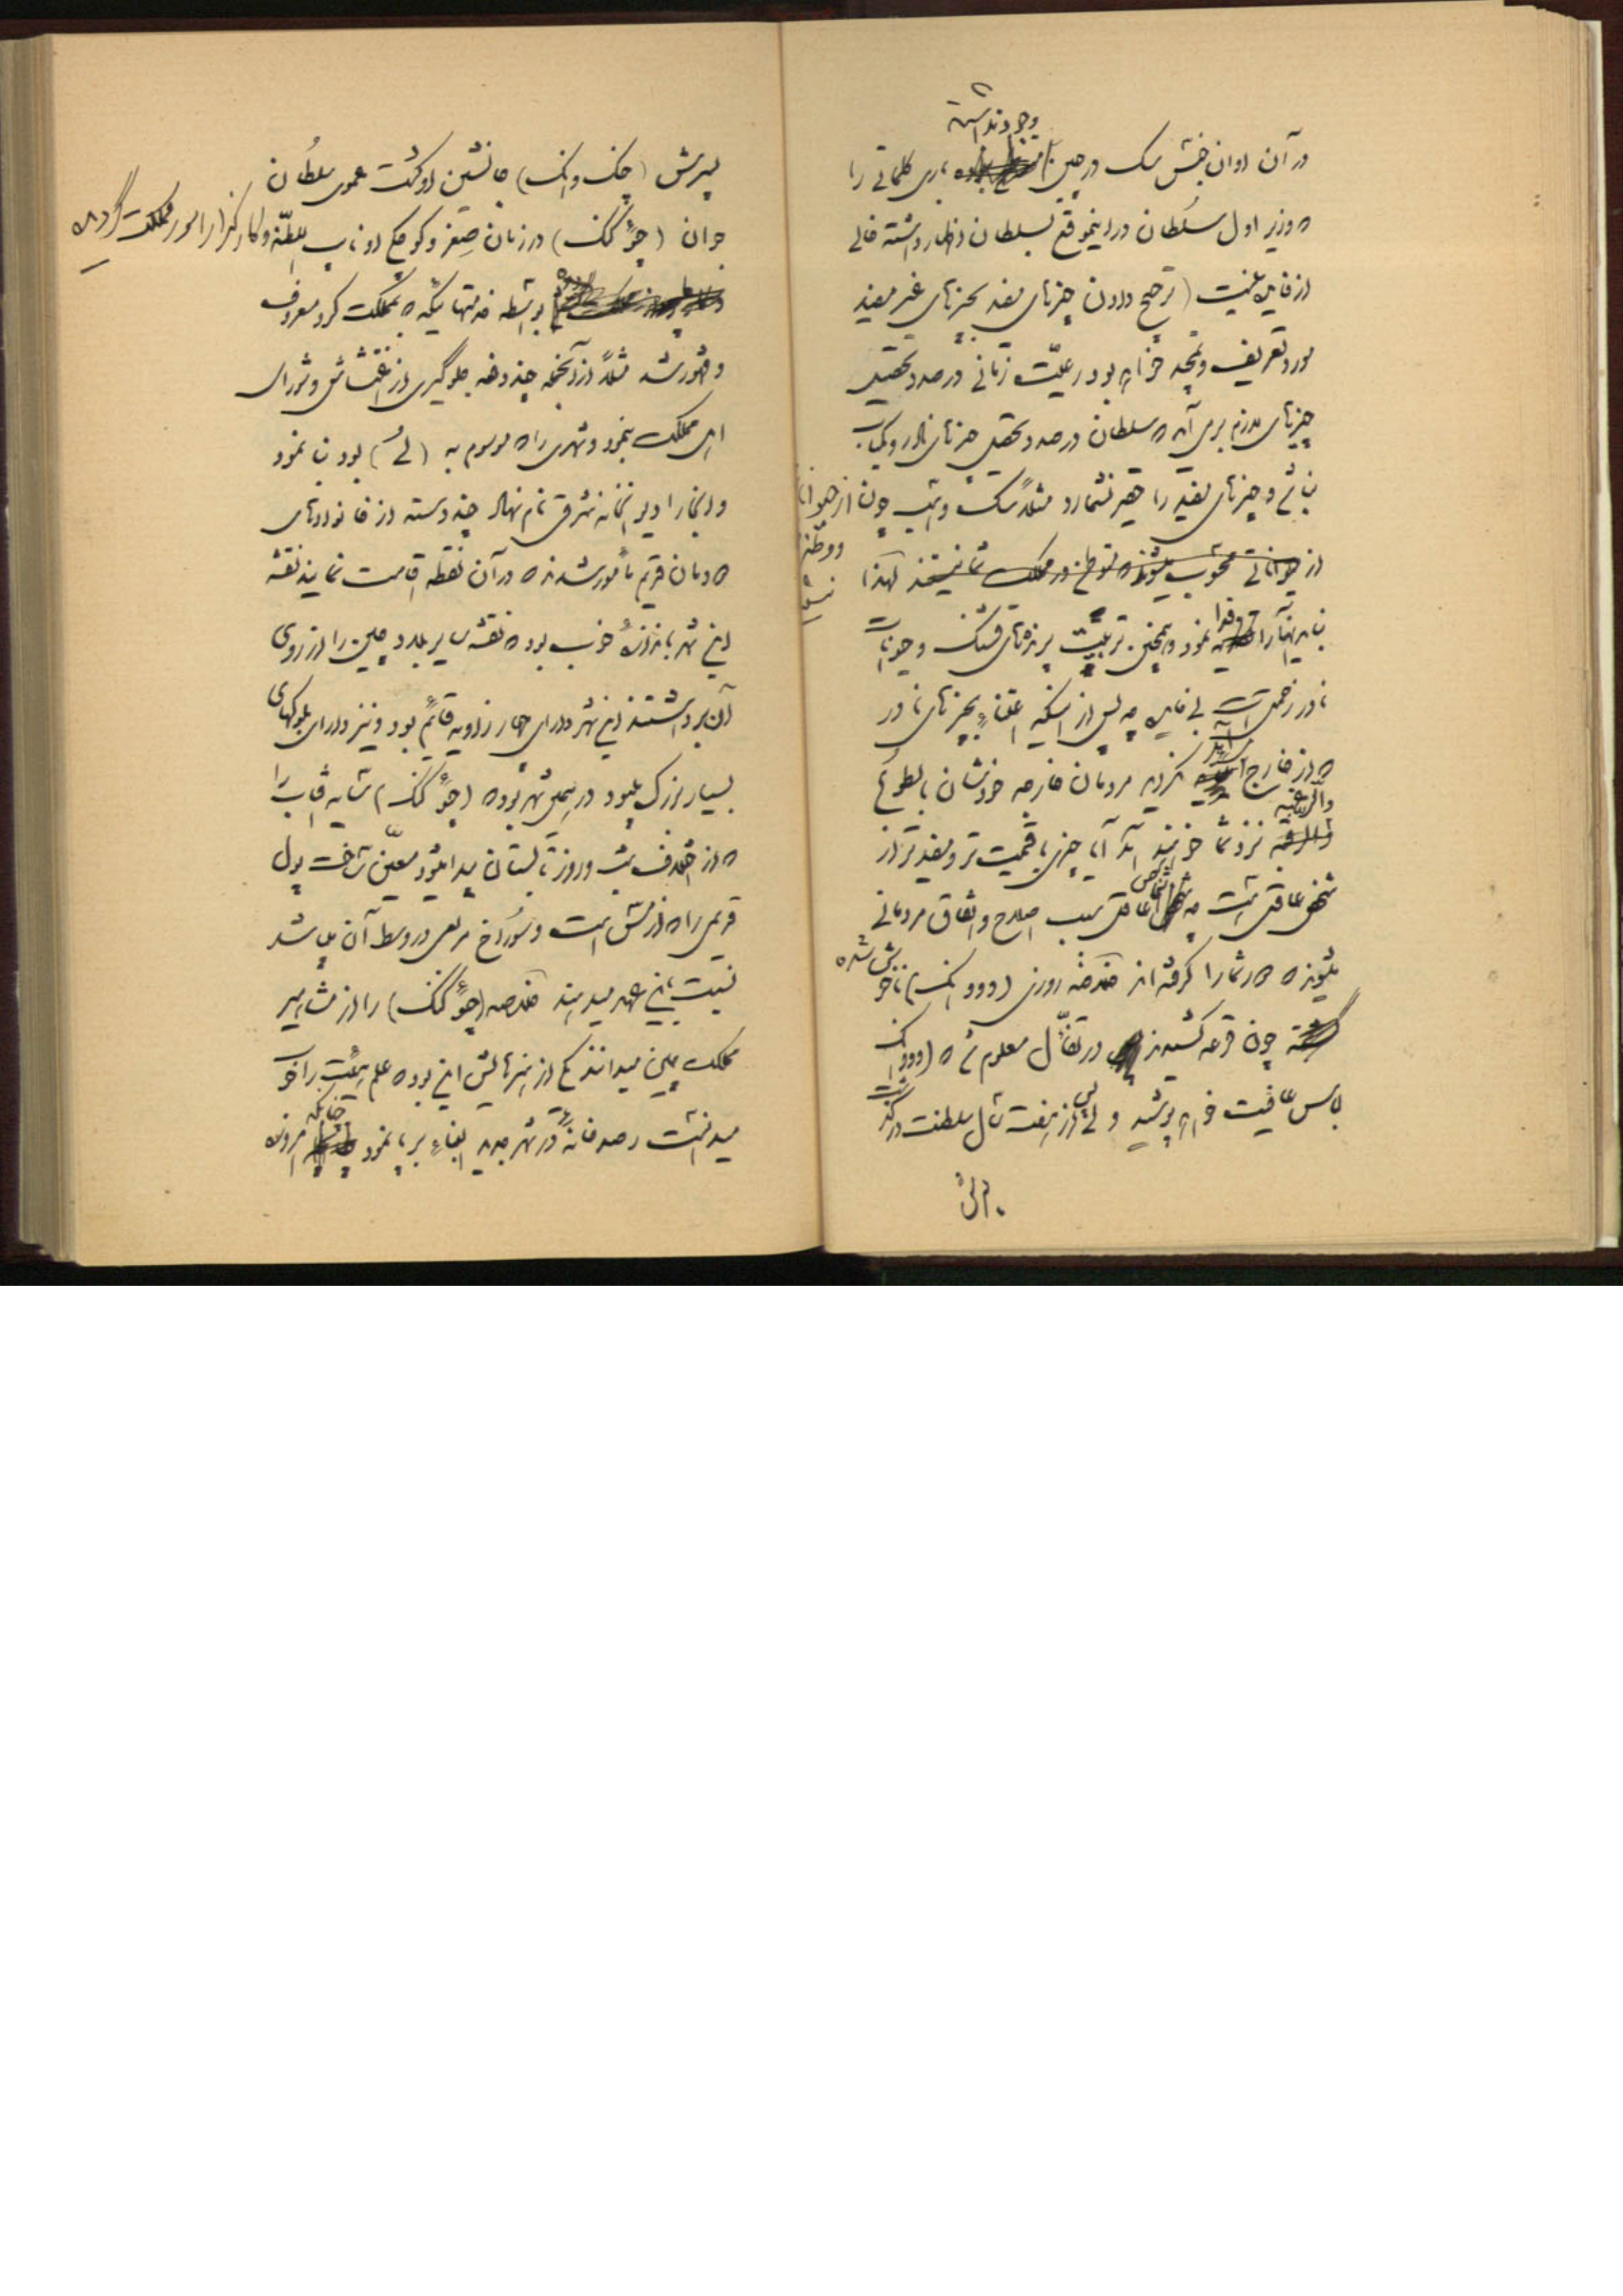 وجود نداشته
در آن اوان جنس سگ در چین باری کلماتی را
که وزیر اول سلطان در اینموقع بسلطان اظهار داشته خالی
از فایده نیست (ترجیح دادن چیزهای مفید بچیزهای غیر مفید
مورد تعریف و تمجید خواهد بود رعیّت زمانی درصدد تحصیل
چیزهای لازم برمی آید که سلطان درصدد تحصیل چیزهای نادر و کمیاب
نباشد و چیزهای مفید را حقیر نشمارد مثلاً سگ و اسب چون از حیوانات
از حیواناتی محسوب میشوند که توطن در مملکت شما نیستند لهذا
نباید آنها را نمود و همچنین تربیت پرنده‌های قشنگ و حیوانات
نادر زحمتی است بی فایده چه پس از اینکه اعتناء بچیزهای نادر
که از خارج آید نکردید مردمان خارجه خودشان بالطوع
والرغبه نزد شما خواهند آمد آیا چیزی باقیمت تر و مفیدتر از
شخص عاقل هست چه اشخاص عاقل سبب اصلاح و اتفاق مردمانی
میشوند که دور شما را گرفته اند خلاصه روزی (ووو انک) ناخوش شده
چون قرعه کشیدند در تفأّل معلوم شد که (ووو انک
لباس عافیت خواهد پوشید ولی پس از هفت سال سلطنت درگذشت
پسرش (چنک وانک) جانشین او گشت عموی سلطان
جوان (چؤ کنک) در زمان صِغر و کوچکی او نایب السلطنه و کارگزار امور مملکت گردید
بواسطه خدمتهائیکه به مملکت کرد معروف
و مشهور شد مثلاً از آنجمله چند دفعه جلوگیری از اغتشاش و شورای
اهل مملکت بنمود و شهری را که موسوم به (لُ) بود بنا نمود
و اینجا را دیوانخانه شرقی نام نهاد چند دسته از خانواده‌های
که دمان قدیم مأمور شدند که در آن نقطه اقامت نمایند نقشه
این شهر باندازهٔ خوب بود که نقشه سایر بلاد چین را از روی
آن برداشتند این شهر دارای چهار زاویه قائم بود و نیز دارای بلوکهای
بسیار بزرگ بود در همین شهر بود که (چؤ کنک) شاید آفتاب را
که از اختلاف شب و روز تابستان پیدا میشود معیّن ساخت پول
قدیمی را که از مس است و سوراخ مربعی در وسط آن میباشد
نسبت باین عهد میدهند خلاصه (چؤ کنک) را از مشاهیر
مملکت چین میدانند یکی از هنرهایش این بود که علم هیئت را خوب
میدانست رصدخانهٔ در شهر جدید البناء برپا نمود چنانکه امروزه